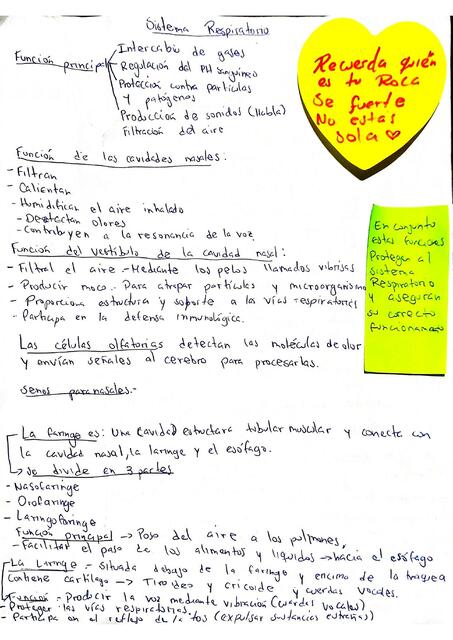 Sistema Respiratorio
Función principal
Intercambio de gases
Regulación del PH sanguíneo
Protección contra partículas
y patógenos
Producción de sonidos (Habla)
Filtración del aire
Recuerda quién
es tu Roca
Se fuerte
No estas
sola ♡
Función de las cavidades nasales:
- Filtran
- Calientan
- Humidifican el aire inhalado
- Detectan olores
- Contribuyen a la resonancia de la voz
Función del vestíbulo de la cavidad nasal:
- Filtral el aire - Mediante los pelos llamados vibrisas
- Producir moco - Para atrapar partículas y microorganismo
- Proporciona estructura y soporte a la vías respiratorias
- Participa en la defensa inmunológica.
En conjunto
estas funciones
Protegen al
sistema
Respiratorio
y aseguran
su correcto
funcionamiento
Las células olfatorias detectan las moléculas de olor
y envían señales al cerebro para procesarlas.
senos paranasales.-
La faringe es: Una cavidad estructura tubular muscular y conecta con
la cavidad nasal, la laringe y el esófago.
→ se divide en 3 partes
- Nasofaringe
- Orofaringe
- Laringofaringe
Función principal → Paso del aire a los pulmones,
- Facilitar el paso de los alimentos y liquidos → hacia el esófago
La Laringe - Situada debajo de la faringe y encima de la traquea
contiene cartílago → Tiroides y cricoide y cuerdas vocales.
Función - Producir la voz mediante vibración (cuerdas vocales)
- Proteger las vías respiratorias,
- Participa en el reflejo de la tos (expulsar sustancias extrañas)